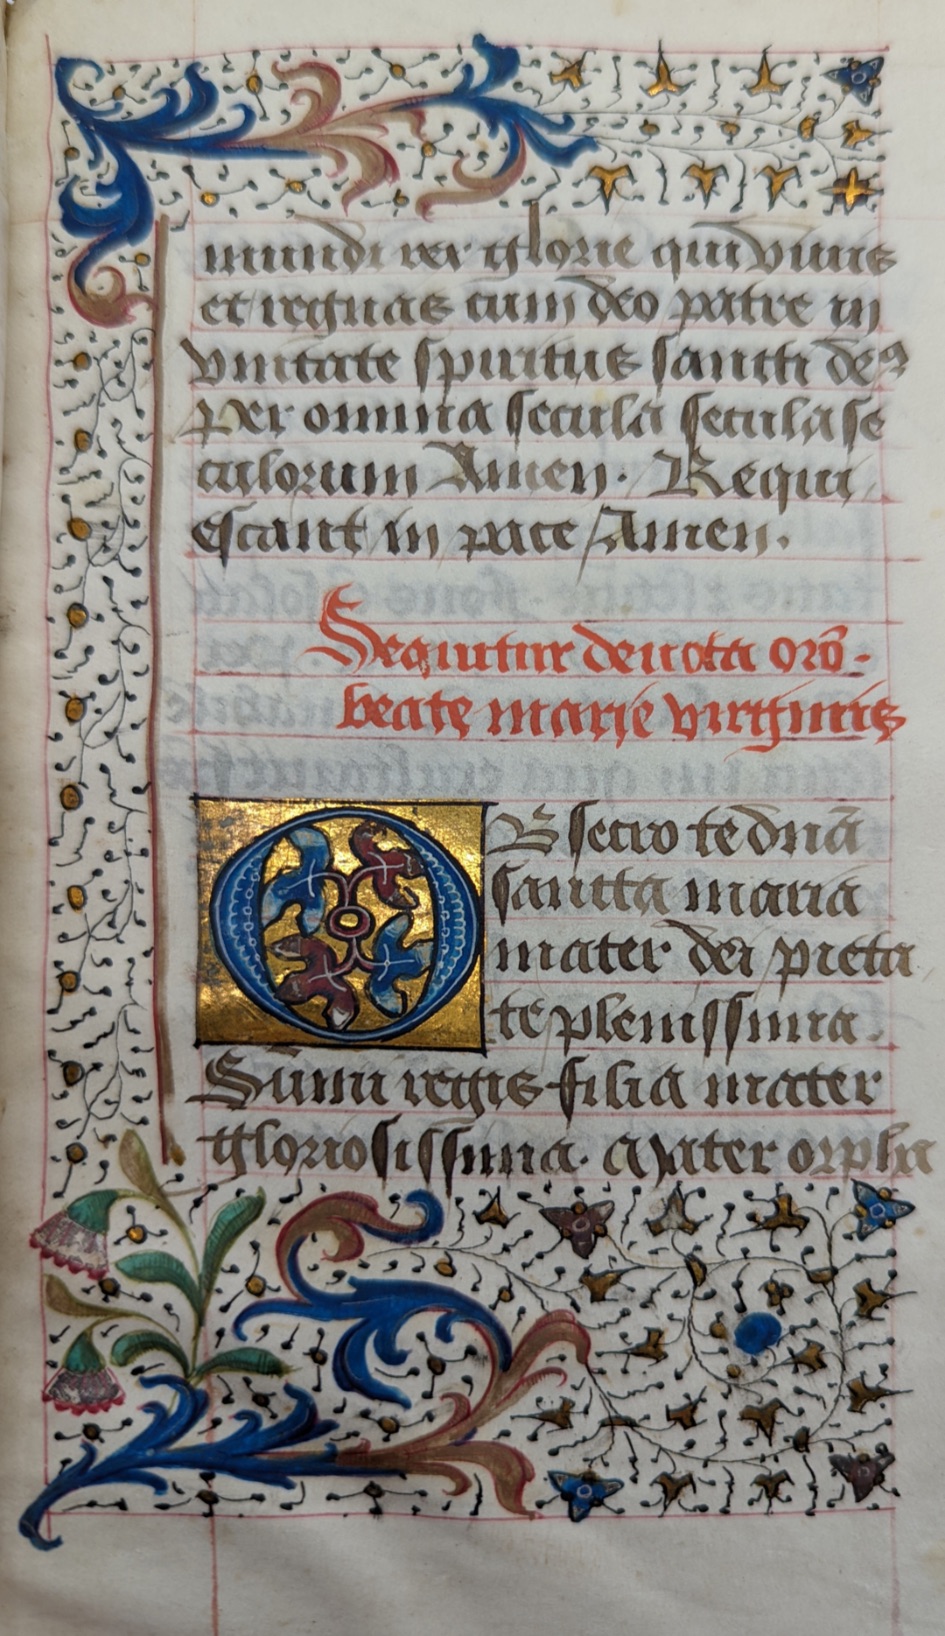 mundi rex glorie qui viuis
et regnas cum deo patre in
vnitate spiritus sancti deꝰ
Per omnia secula seculase
culorum Amen. Requi
escant in pace Amen.
Sequitur deuota orō.
beate marie virginis
OBsecro te dn̄a
sancta maria
mater dei pieta
te plenissima.
Sum̄i regis filia mater
gloriosissima. Mater orpha